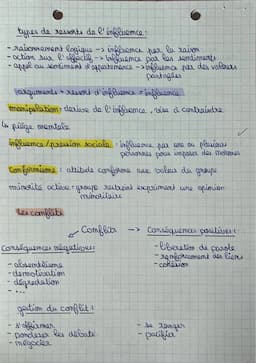 types de ressorts de l'influence :
- raisonnement logique -> influence par la raison
- action sur l'affectif -> influence par les sentiments
- appel au sentiment d'appartenance -> influence par des valeurs
partagées
arguments + ressort d'influence = influence
manipulation : dérive de l'influence, vise à contraindre
↳ piège mentale
influence/pression sociale : influence par une ou plusieurs
personnes pour imposer des normes
Conformisme : attitude conforme aux valeurs du groupe
minorité active : groupe restreint exprimant une opinion
minoritaire
Les conflits
Conflits -> Conséquences positives :
Conséquences négatives :
- libération de parole
- renforcement des liens
- cohésion
- absentéisme
- démotivation
- dégradation
- ...
gestion du conflit :
- s'affirmer
- pondérer les débats
- négocier
- se ranger
- pacifier